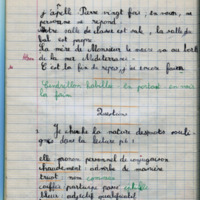 J'appelle Pierre vingt fois; en vain, ne
personne ne répond
Notre salle de classe est sale, la salle de
bal est propre
La mère de Monsieur le maire va au bord
de la mer Méditerranée
C'est la fin du repas, j'ai encore faim
Cendrillon habille
la faim
Questions
Je cherche la nature des mots souli-
gnés dans la lecture
elle pronom personnel de conjugaison
chaudement adverbe de manière
tricot nom commun
coiffés participe passé
bleus adjectif qualificatif